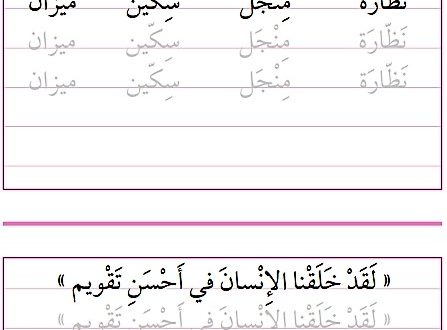 نظارة مِنْجَل سِكّين ميزان
نَظّارَة مِنْجَل سِكّين ميزان
نَظّارَة مِنْجَل سِكّين ميزان
« لَقَدْ خَلَقْنا الإِنْسانَ في أَحْسَنِ تَقْويم »
« لَقَدْ خَلَقْنا الإِنْسانَ في أَحْسَنِ تَقْويم »